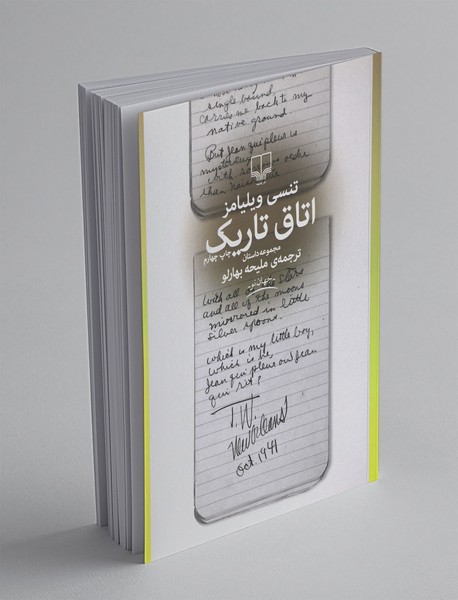 single bound
carries me back to my
native ground.
But Jean qui pleure is
mysterious
تنسی ویلیامز
اتاق تاریک
مجموعه داستان چاپ چهارم
ترجمه‌ی ملیحه بهارلو
جهان نو
With all of the stars
and all of the moons
mirrored in little
silver spoons.
which is my little boy,
which is he,
Jean qui pleure ou Jean
qui rit?
T.W.
New Orleans
Oct. 1941